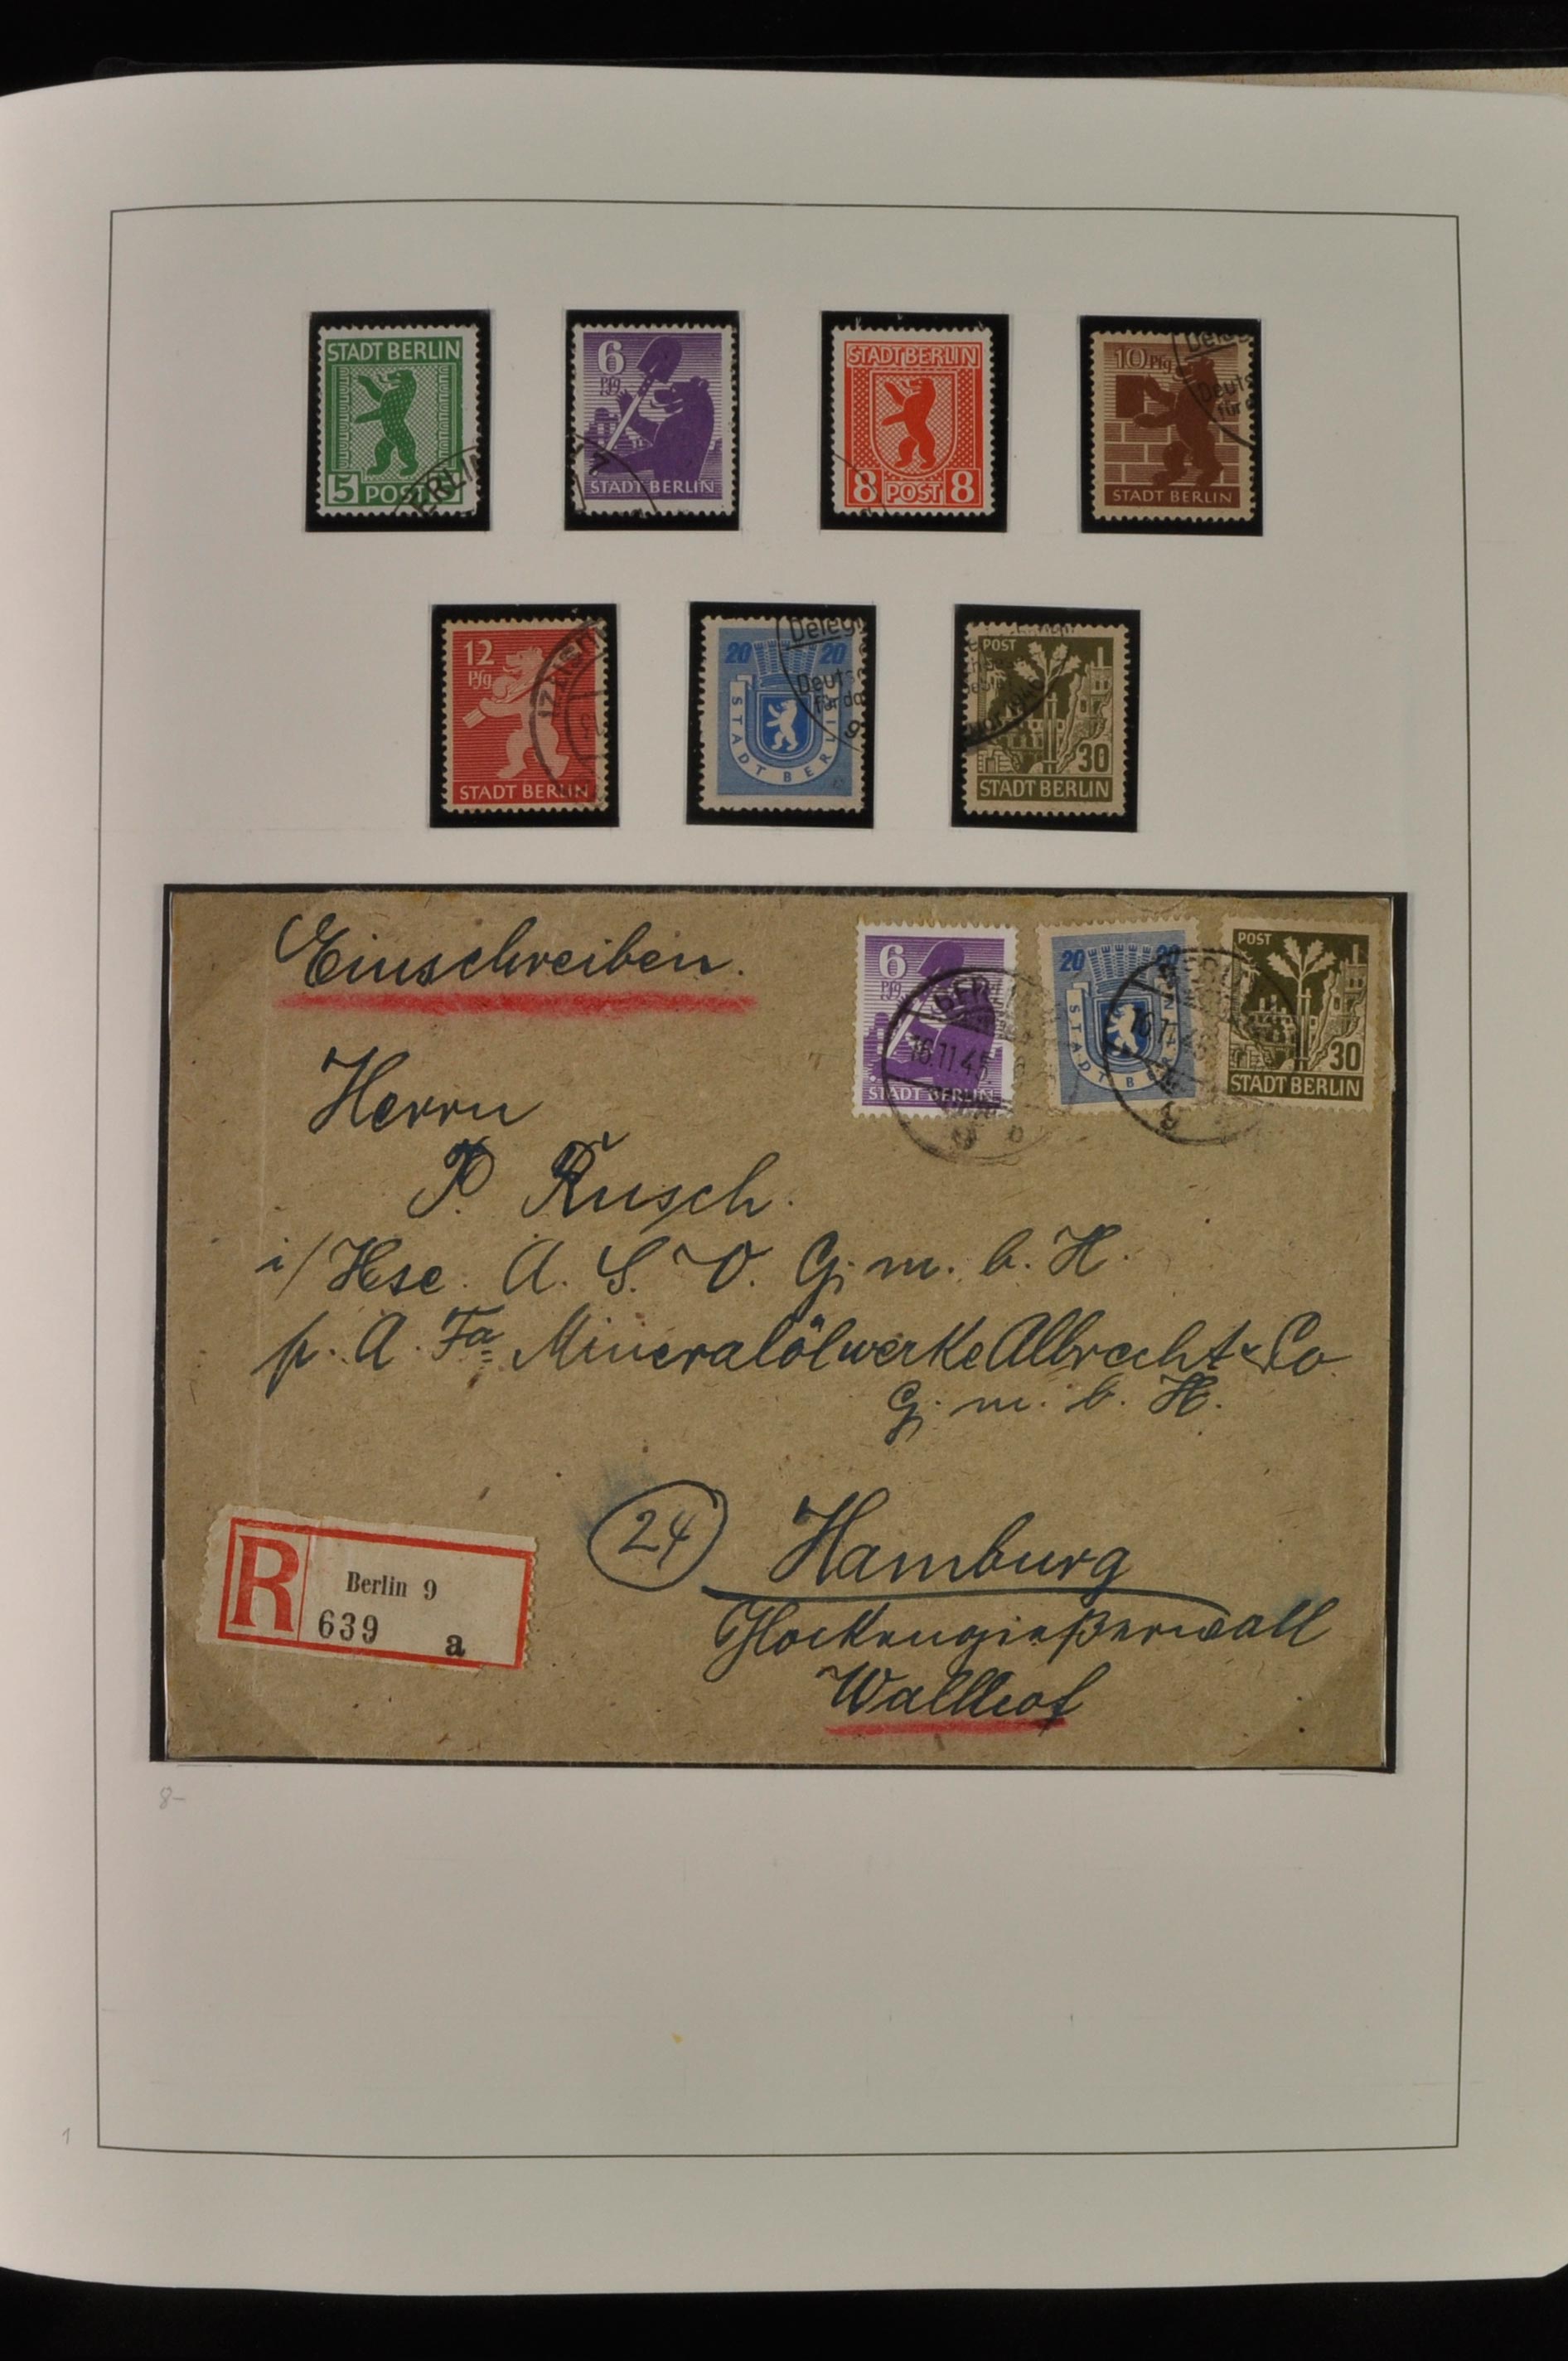 STADT BERLIN
5 POST
ERLIN
6
Pfg
STADT BERLIN
STADT BERLIN
8 POST 8
10 Pfg
Deuts
für
STADT BERLIN
12
Pfg
STADT BERLIN
20 20
STADT BERLIN
Deleg
Deuts
für da
POST
30
STADT BERLIN
Einschreiben.
6
Pfg
STADT BERLIN
BERLIN
16.11.45
20 20
STADT BERLIN
BERLIN
16.11.45
POST
30
STADT BERLIN
Herrn
P. Rusch.
i/Hse. A. S. V. G. m. b. H.
p. A. Fa. Mineralölwerke Albrecht & Co.
G. m. b. H.
R
Berlin 9
639 a
24 Hamburg
Glockengießerwall
Wallhof
8-
1